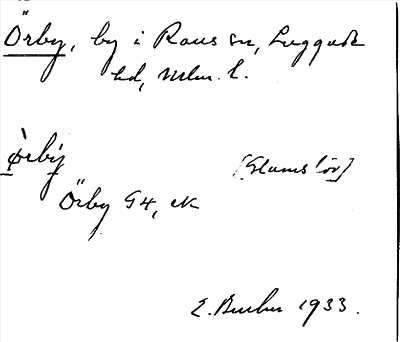 Örby, by i Raus sn, Luggude
hd, Mlm. l.
ǿ̀rbý [Glumslöv]
Örby G4, ek
1933.